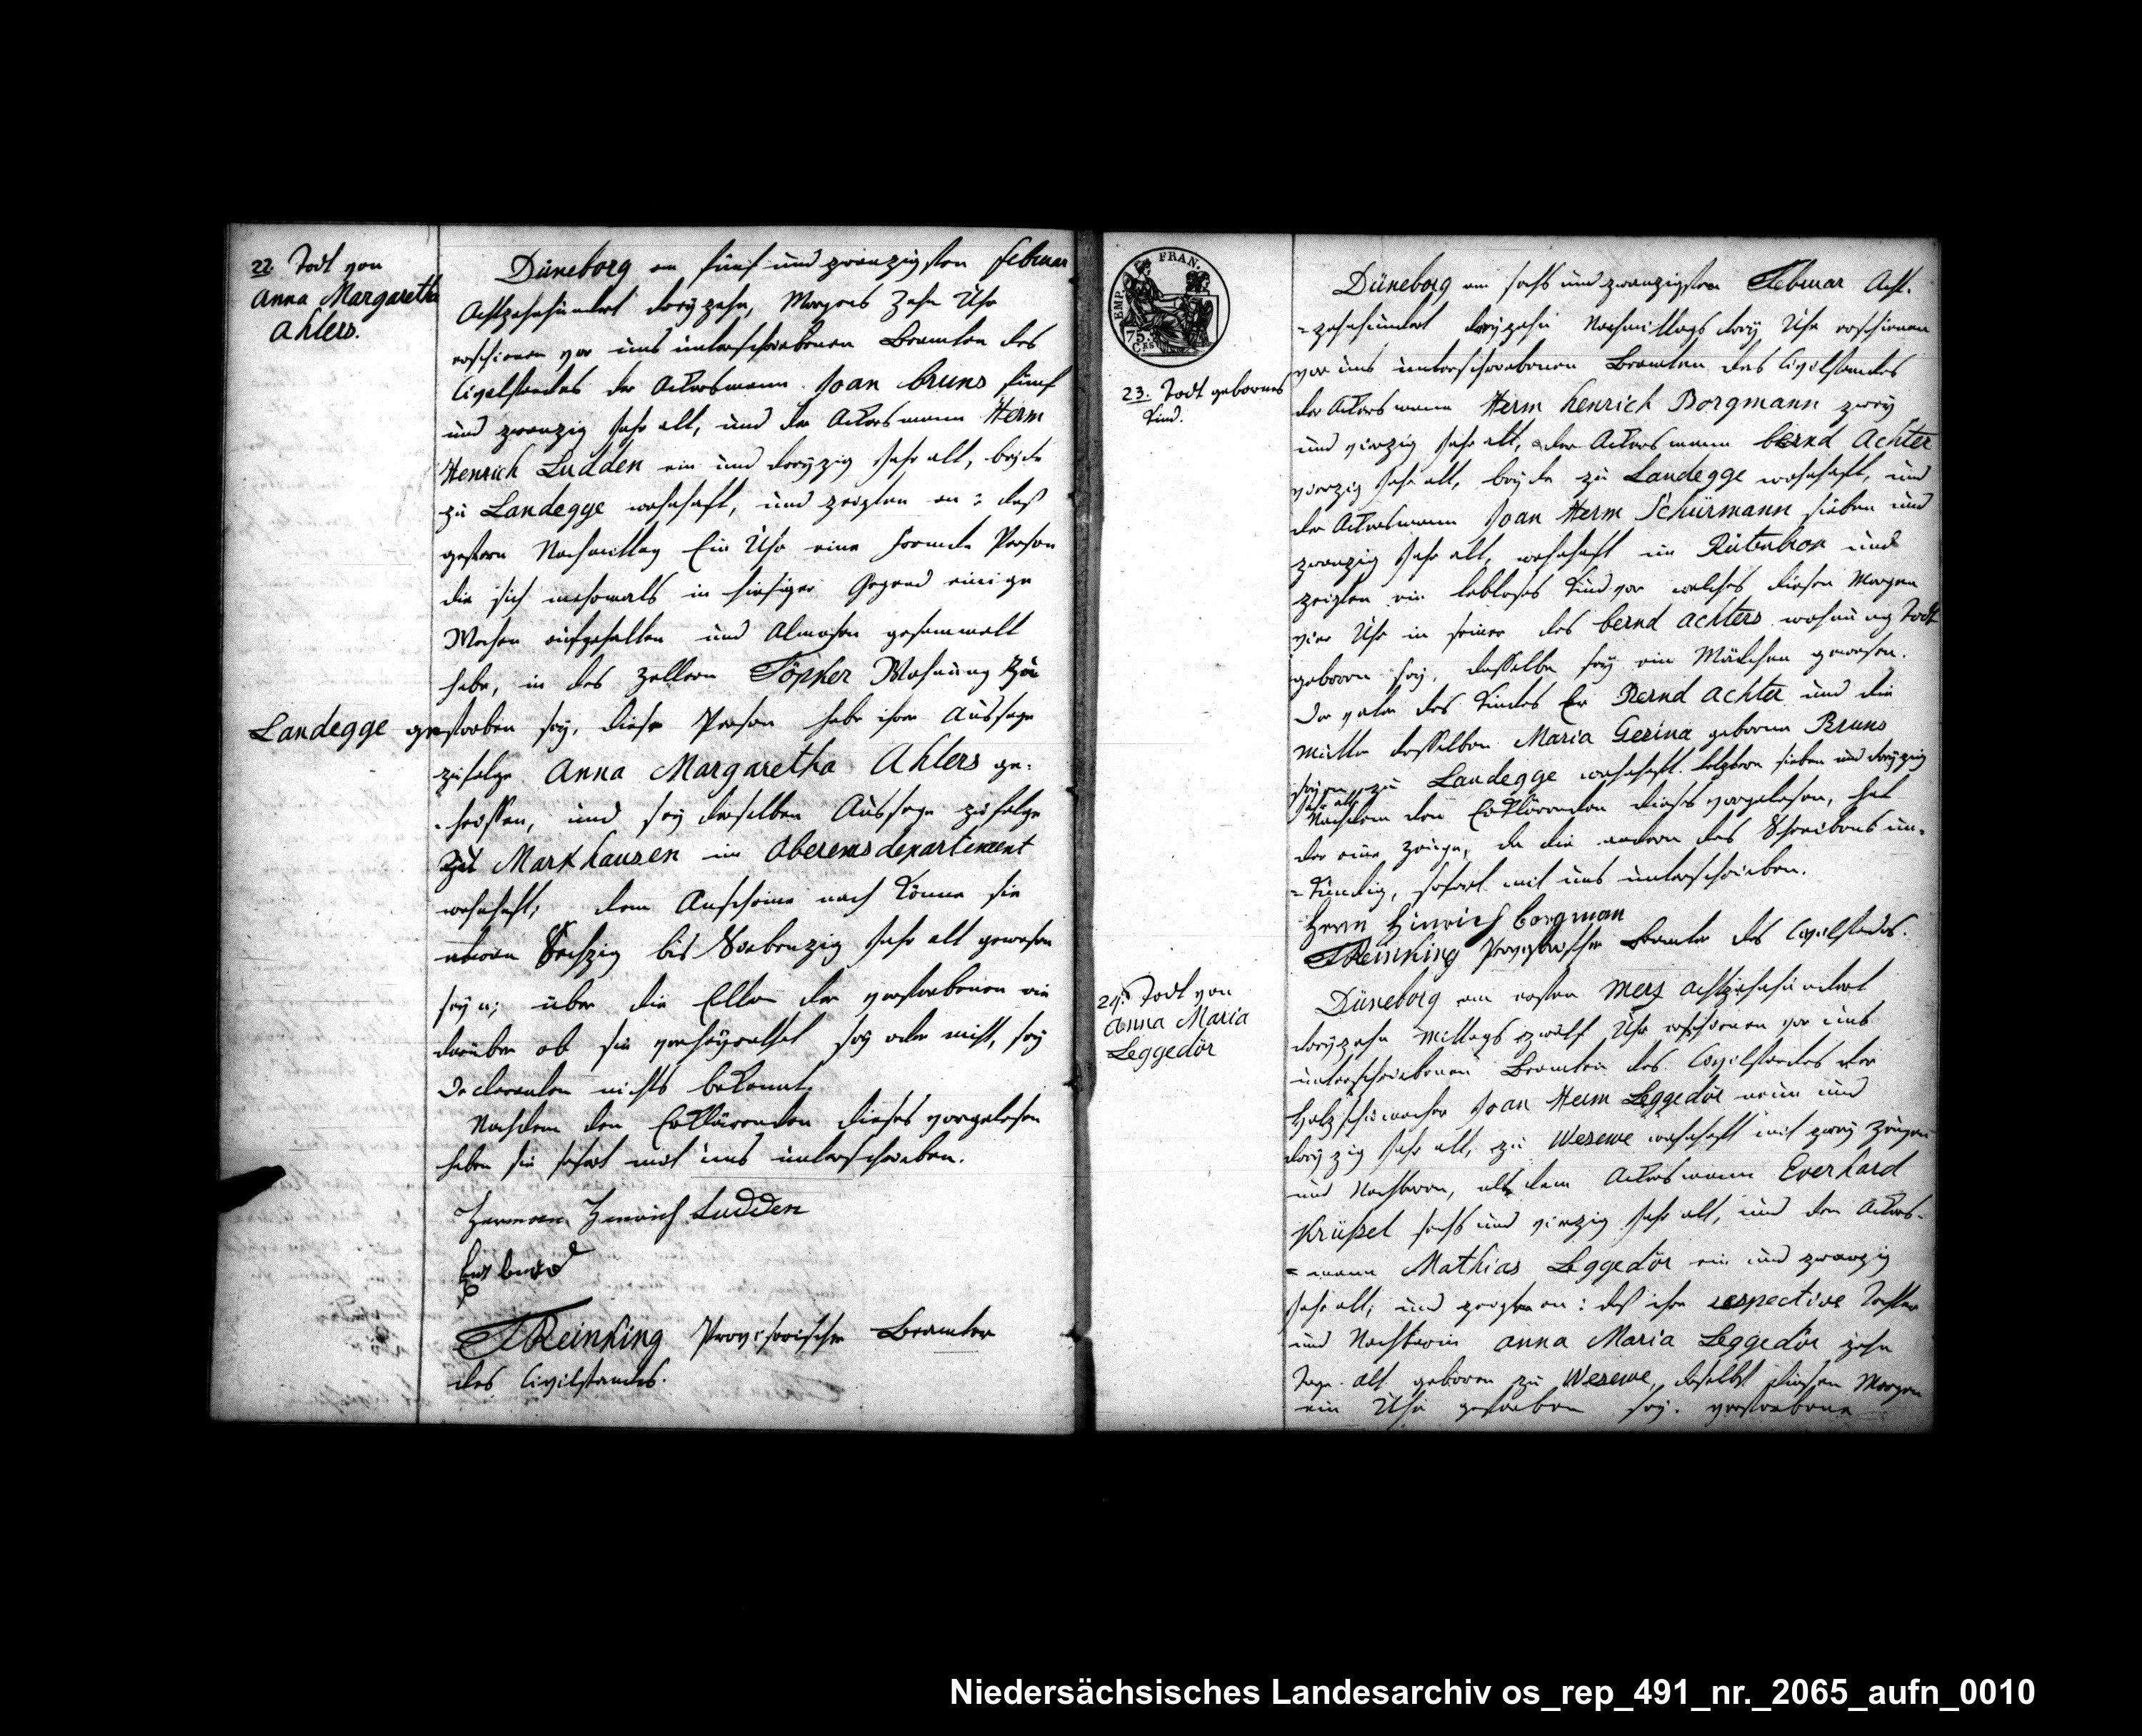 22. Todt von
Anna Margaretha
Ahlers.
Düneborg am fünf und zwanzigsten Februar
Achtzehnhundert dreÿzehn, Morgens Zehn Uhr
erschienen vor uns unterschriebenen Beamten des
Civilstandes der Ackersmann Joan Bruns fünf
und zwanzig Jahr alt, und der Ackersmann Herm
Henrich Ludden ein und dreÿzig Jahr alt, beÿde
zu Landegge wohnhaft, und zeigten an: daß
gestern Nachmittag Ein Uhr eine fremde Person
die sich mehrmals in hiesiger Gegend einige
Wochen aufgehalten und Almosen gesammelt
habe, in des Zellern Töpker Wohnung zu
Landegge gestorben seÿ, diese Person habe ihrer Aussage
zufolge Anna Margaretha Ahlers ge-
heissen, und seÿ derselben Aussage zufolge
zu Markhausen im Oberemsdepartement
wohnhaft; dem Anscheine nach könne sie
etwan Sechzig bis Siebenzig Jahr alt gewesen
seÿn; über die Eltern der verstorbenen wie
darüber ob sie verheÿrathet seÿ oder nicht, seÿ
Declaranten nichts bekannt.
Nachdem den Erklärenden dieses vorgelesen
haben sie sofort mit uns unterschrieben.
Hermen Henrich Ludden
TReinking Provisorischer Beamter
des Civilstandes.
EMP. FRAN.
75.
23. Todt gebornes
Kind.
Düneborg am sechs und zwanzigsten Februar Acht-
=zehnhundert dreÿzehn Nachmittags dreÿ Uhr erschienen
vor uns unterschriebenen Beamten des Civilstandes
der Ackersmann Herm Henrich Borgmann zweÿ
und vierzig Jahr alt, der Ackersmann Bernd Achter
vierzig Jahr alt, beÿde zu Landegge wohnhaft, und
der Ackersmann Joan Herm Schürmann sieben und
zwanzig Jahr alt, wohnhaft im Rütenbrok und
zeigten ein lebloses Kind vor welches diesen Morgen
vier Uhr in seiner des Bernd Achters wohnung Todt
geboren seÿ, dasselbe seÿ ein Mädchen gewesen.
Der vater des Kindes Er Bernd Achter und die
Mutter desselben Maria Gesina geborne Bruns
seÿen zu Landegge wohnhaft. letztere sieben und dreÿzig
Jahr alt
Nachdem den Erklärenden dieses vorgelesen, hat
der eine Zeuge, da die andern des Schreibens un-
=kundig, sofort mit uns unterschrieben.
Herm Hinrich Borgman
TReinking Provisorischer Beamter des Civilstandes.
24. Todt von
Anna Maria
Leggedör
Düneborg am ersten Merz achtzehnhundert
dreÿzehn Mittags zwölf Uhr erschienen vor uns
unterschriebenen Beamten des Civilstandes der
Holzschumacher Joan Herm Leggedör neun und
dreÿzig Jahr alt, zu Wesewe wohnhaft mit zweÿ Zeugen
und Nachbaren, als dem Ackersmann Everhard
Krüßel sechs und vierzig Jahr alt, und dem Ackers-
=mann Mathias Leggedör ein und zwanzig
Jahr alt, und zeigten an: daß ihre respective Tochter
und Nachbarin Anna Maria Leggedör zehn
Tage alt geboren zu Wesewe, daselbst diesen Morgen
ein Uhr gestorben seÿ. verstorbene
Niedersächsisches Landesarchiv os_rep_491_nr._2065_aufn_0010